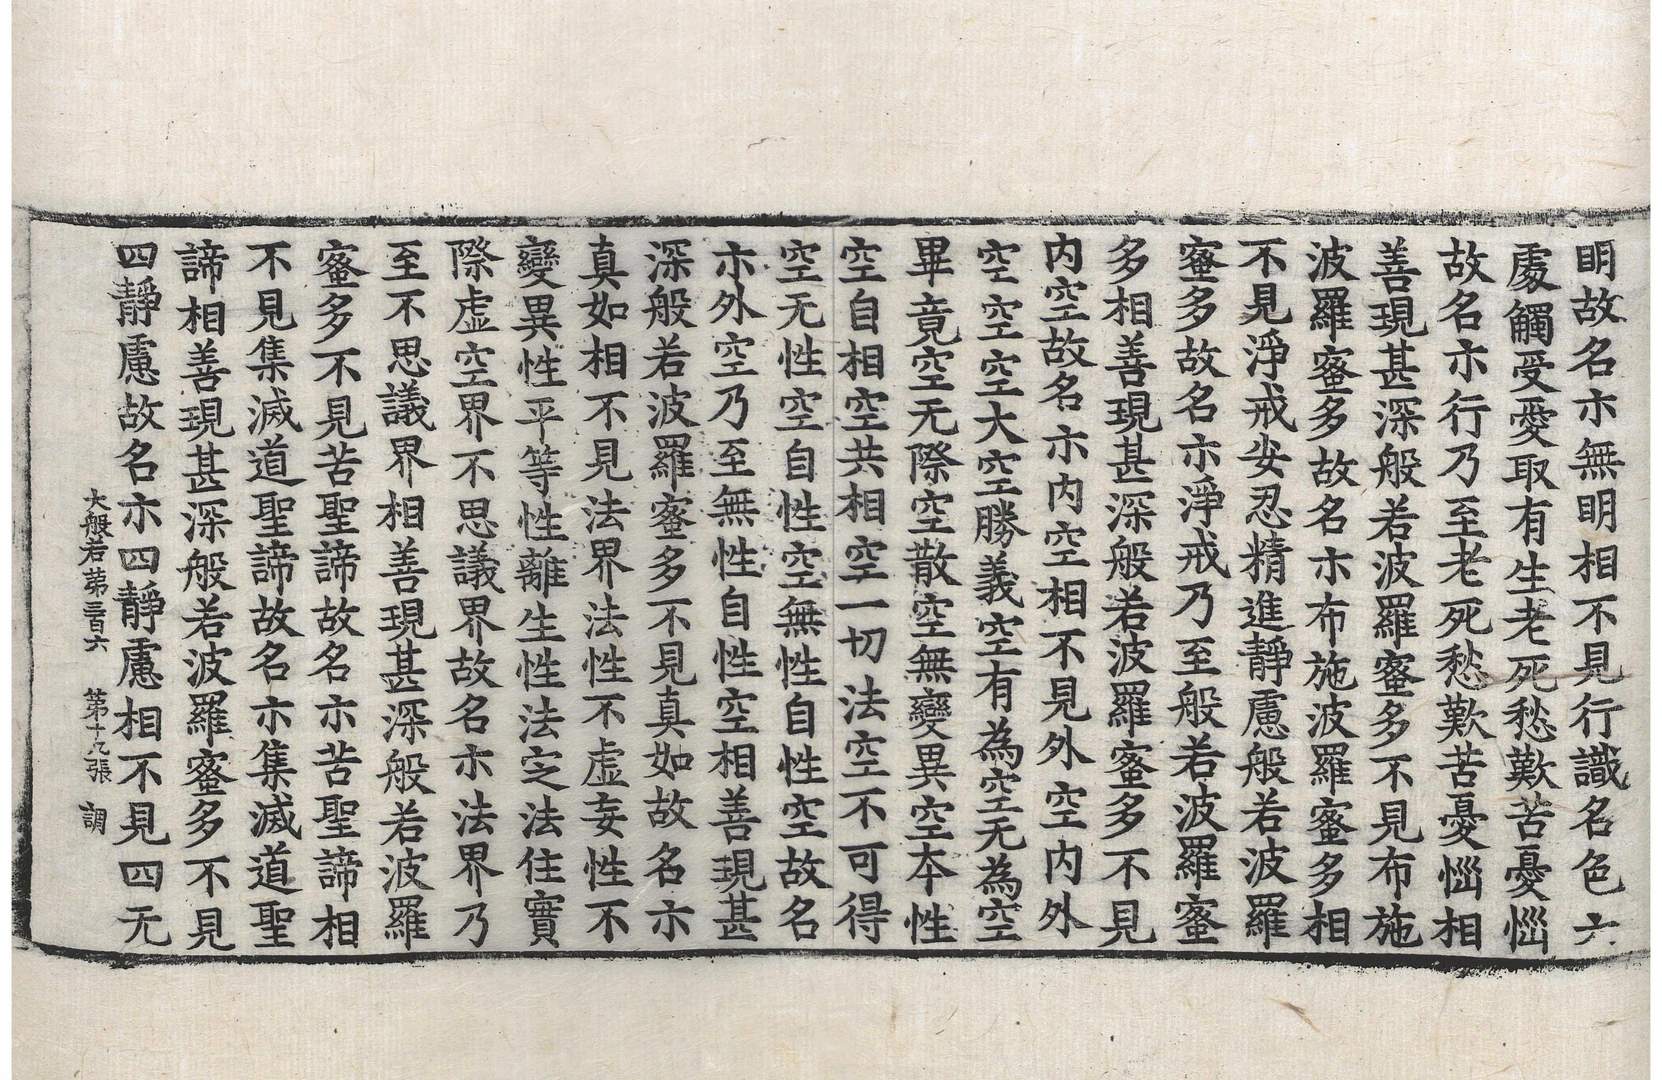 明故名亦無明相不見行識名色六
處觸受愛取有生老死愁歎苦憂惱
故名亦行乃至老死愁歎苦憂惱相
善現甚深般若波羅蜜多不見布施
波羅蜜多故名亦布施波羅蜜多相
不見淨戒安忍精進靜慮般若波羅
蜜多故名亦淨戒乃至般若波羅蜜
多相善現甚深般若波羅蜜多不見
内空故名亦内空相不見外空内外
空空空大空勝義空有為空无為空
畢竟空无際空散空無變異空本性
空自相空共相空一切法空不可得
空无性空自性空無性自性空故名
亦外空乃至無性自性空相善現甚
深般若波羅蜜多不見真如故名亦
真如相不見法界法性不虛妄性不
變異性平等性離生性法定法住實
際虛空界不思議界故名亦法界乃
至不思議界相善現甚深般若波羅
蜜多不見苦聖諦故名亦苦聖諦相
不見集滅道聖諦故名亦集滅道聖
諦相善現甚深般若波羅蜜多不見
四靜慮故名亦四靜慮相不見四无
大般若第三百六 第十九張 調